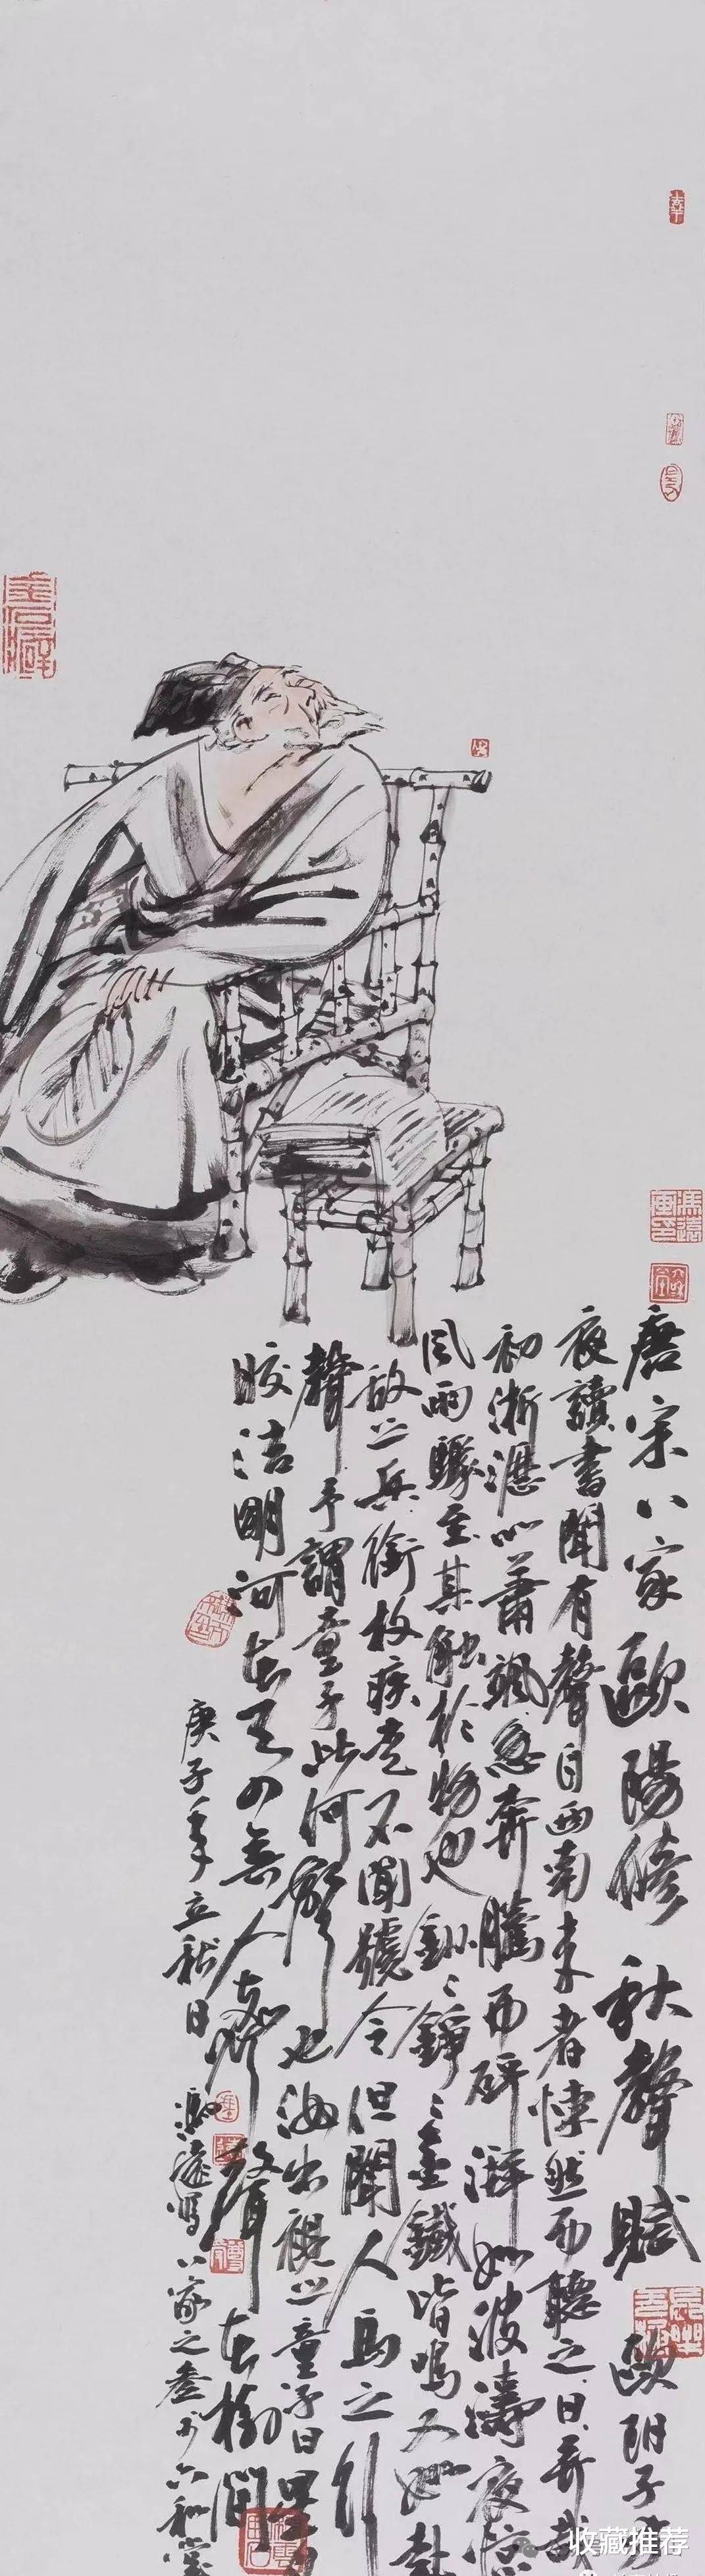 唐宋八家歐陽脩秋聲賦 歐陽子方
夜讀書聞有聲自西南來者悚然而聽之曰異哉
初淅瀝以蕭颯忽奔騰而砰湃如波濤夜驚
風雨驟至其觸於物也鏦〻錚〻金鐵皆鳴又如赴
敵之兵銜枚疾走不聞號令但聞人馬之行
聲予謂童子此何聲也汝出視之童子曰星月
皎潔明河在天四無人聲聲在樹間
庚子年立秋日馮遠寫八家之叁於六和堂
收藏推荐